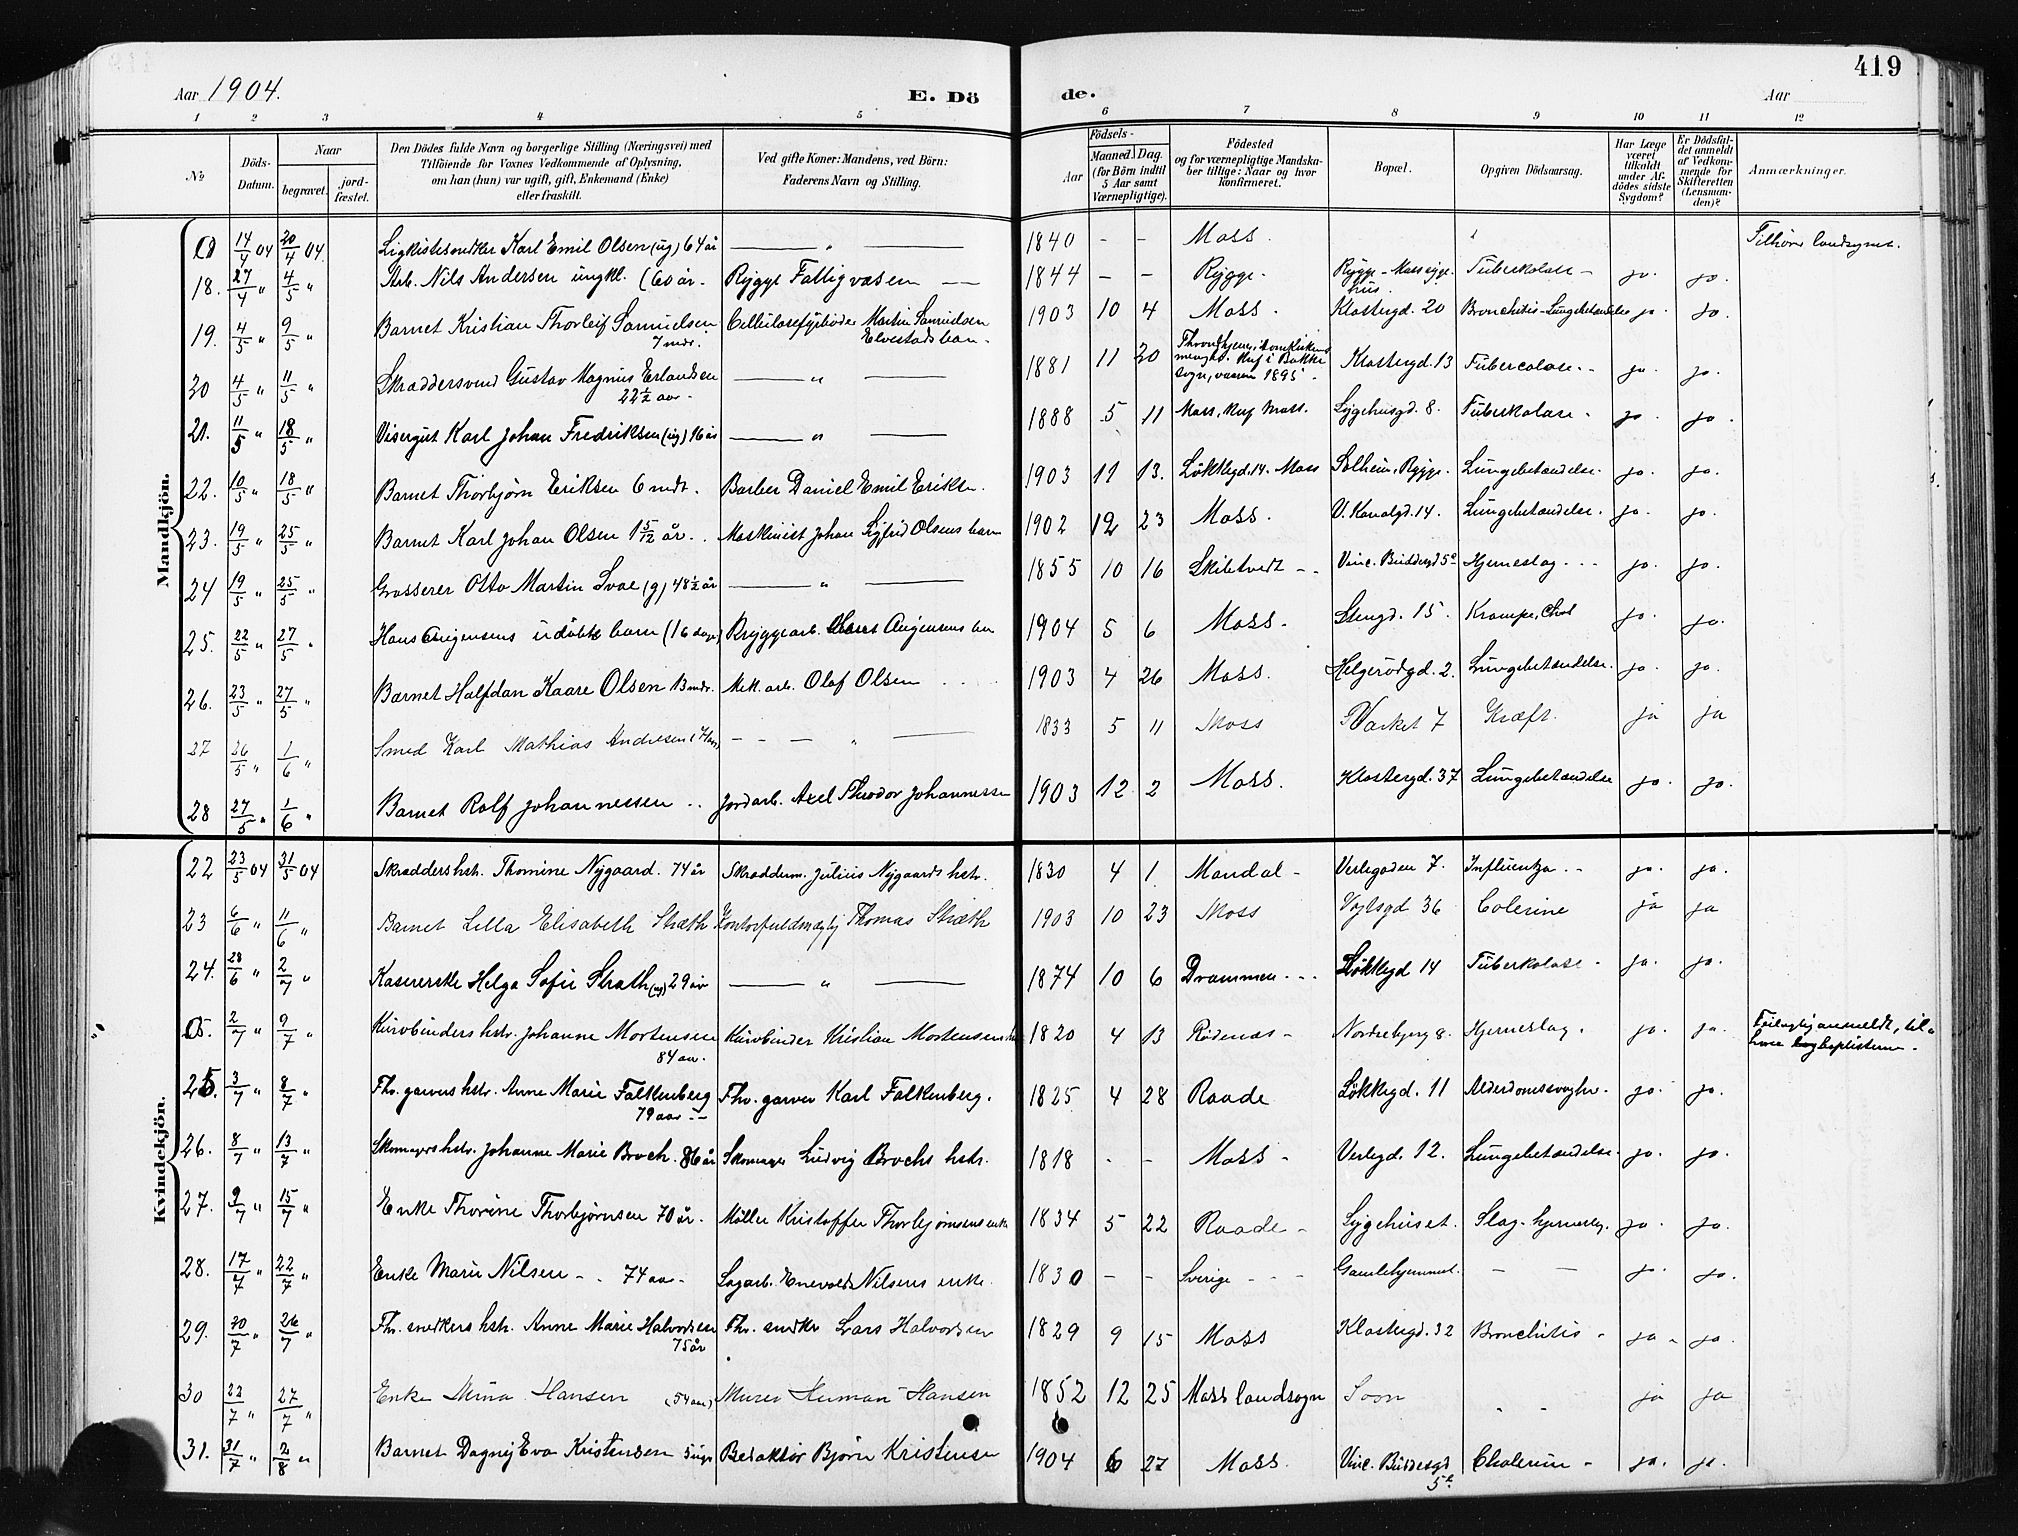 419
Aar 1904.
E. Dö
de.
Aar
1 2 3 4 5 6 7 8 9 10 11 12
№
Döds-Datum.
Naar
begravet.
jord-fæstet.
Den Dödes fulde Navn og borgerlige Stilling (Næringsvei) med
Tilföiende for Voxnes Vedkommende af Oplysning,
om han (hun) var ugift, gift, Enkemand (Enke)
eller fraskilt.
Ved gifte Koner: Mandens, ved Börn:
Faderens Navn og Stilling.
Födsels-
Aar
Maaned. Dag.
(for Börn indtil
5 Aar samt
Værnepligtige).
Födested
og for værnepligtige Mandska-
ber tillige: Naar og hvor
konfirmeret.
Bopæl.
Opgiven Dödsaarsag.
Har Læge
været
tilkaldt
under Af-
dödes sidste
Sygdom?
Er Dödsfal-
det anmeldt
af Vedkom-
mende for
Skifteretten
(Lensman-
den)?
Anmærkninger.
Mandkjön.
0 14/4 04 20/4 04. Ligkistesnedker Karl Emil Olsen (ug) 64 år — " — 1840 - - Moss. Tilhører landsognet.
18. 27/4 " 4/5 " Arb. Nils Andersen ungkl. (60 år. Rygge Fattigvæsen — 1844 - - Rygge. Rygge - Moss syge-hus. Tuberkolose - jo. jo.
19. 4/5 " 9/5 " Barnet Kristian Thorleif Samuelsen 7 mdr. Cellulosefyrbøder Martin Samuelsen Elvestads barn. 1903 10 4 Moss. Klostergd. 20 Bronchitis - Lungebetændelse jo. jo.
20 4/5 " 11/5 " Skræddersvend Gustav Magnus Erlandsen 22½ aar. — " — 1881 11 20 Throndhjem, Domkirkens menighet. Kuf i Bakke sogn, vaaren 1895. Klostergd. 13 Tubercolose. - jo. jo.
21. 11/5 " 18/5 " Visergut Karl Johan Fredriksen (ug) 16 år — " — 1888 5 11 Moss, Kuf Moss. Sygehusgd. 8. Tuberkolose. jo. jo.
22. 10/5 " 18/5 " Barnet Thorbjørn Eriksen 6 mdr. Barber Daniel Emil Eriksen. 1903 11 13. Løkkegd. 14. Moss Solheim, Rygge. Lungebetændelse. jo. jo.
23. 19/5 " 25/5 " Barnet Karl Johan Olsen 1 5/12 år. Maskinist Johan Sigfrid Olsens barn 1902 12 23 Moss. V. Kanalgd. 14. Lungebetændelse. jo. jo.
24 19/5 " 25/5 " Grosserer Otto Martin Svae (g) 48½ år — " — 1855 10 16 Skiptvedt - - Vinc. Buddesgd 5ᵉ Hjerneslag - - - jo. jo.
25. 22/5 " 27/5 " Hans Jørgensens udøbte barn (16 dage) Bryggearb. Hans Jørgensens barn 1904 5 6 Moss. Stengd. 15. Krampe, Chol jo. jo.
26. 23/5 " 27/5 " Barnet Halfdan Kaare Olsen 13 mdr. Mek. arb. Olaf Olsen 1903 4 26 Moss. Helgerødgd. 2. Lungebetændelse. jo. jo.
27 26/5 " 1/6 " Smed Karl Mathias Andresen (71 aar) — " — 1833 5 11 Moss Værket 7 Kræft. ja ja
28 27/5 " 1/6 " Barnet Rolf Johannessen .. Jordarb. Axel Theodor Johannessen 1903 12 2 Moss. Klostergd. 37 Lungebetændelse jo. jo.
Kvindekjön.
22 23/5 04 31/5 04 Skrædders hstr. Thomine Nygaard. 74 år Skrædderm. Julius Nygaards hstr. 1830 4 1. Mandal - Verlegaden 7. Influentza. - jo. jo.
23 6/6 " 11/6 " Barnet Lilla Elisabeth Stræth Kontorfuldmægtig Thomas Stræth 1903 10 23 Moss Voglsgd 36 Colerine ja ja
24. 28/6 " 2/7 " Kasererske Helga Sofie Strath (ug) 29 år — " — 1874 10 6 Drammen - - - Løkkegd 14 Tuberkolose - ja. jo.
0. 2/7 " 9/7 " Kurvbinders hstr. Johanne Mortensen 84 aar. Kurvbinder Kristian Mortensens hstr 1820 4 13 Rødenæs - Nordrebyg 8. Hjerneslag. jo. ja. Feilagtig anmeldt, til-hører baptisterne.
25. 3/7 " 8/7 " Fhv. garvers hstr. Anne Marie Falkenberg 79 aar - Fhv. garver Karl Falkenberg. 1825 4 28 Raade Løkkegd. 11 Alderdomssvaghed. jo. jo.
26. 8/7 " 13/7 " Skomagers hstr. Johanne Marie Broch. 86 år Skomager Ludvig Brochs hstr. 1818 - - Moss - Verlegd. 12. Lungebetændelse. jo. jo.
27. 9/7 " 15/7 " Enke Thorine Thorbjørnsen 70 år. Møller Kristoffer Thorbjørnsens enke 1834 5 22 Raade - Sygehuset. Slag - hjerneslag. ja. jo.
28. 17/7 " 22/7 " Enke Marie Nilsen - - 74 aar - Sagarb. Enevold Nilsens enke. 1830 - - Sverige - - - Gamlehjemmet. — — jo. jo.
29. 20/7 " 26/7 " Fhv. snedkers hstr. Anne Marie Halvorsen 75 år Fhv. snedker Lars Halvorsen 1829 9 15 Moss Klostergd. 32 Bronchitis - ja - jo.
30 22/7 " 27/7 " Enke Mina Hansen (51 aar) Murer Herman Hansen 1852 12 25 Moss landsogn Soon " " ja ja
31. 31/7 " 2/8 " Barnet Dagny Eva Kristensen 5 uger Redaktør Bjørn Kristensen 1904 6 27 Moss. Vinc. Buddesgd 5ᵉ Cholerine - ja. jo.